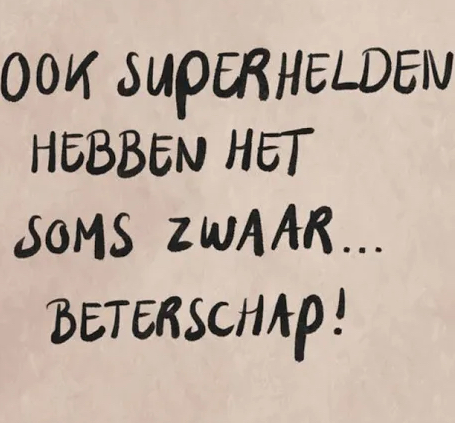 OOK SUPERHELDEN
HEBBEN HET
SOMS ZWAAR...
BETERSCHAP!